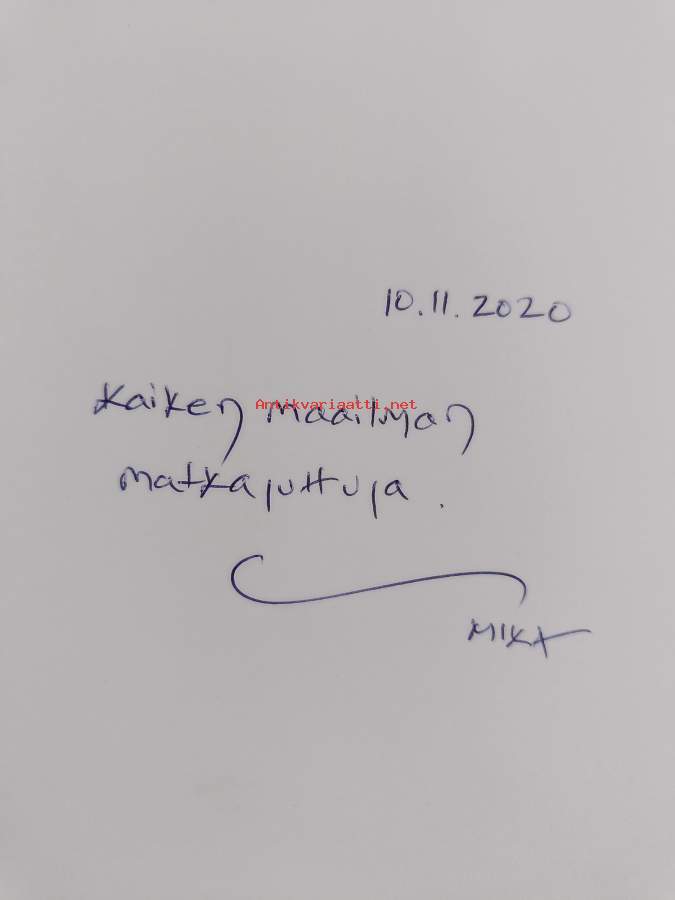 10.11.2020
Kaiken maailman
Antikvariaatti.net
matkajuttuja.
MIKA